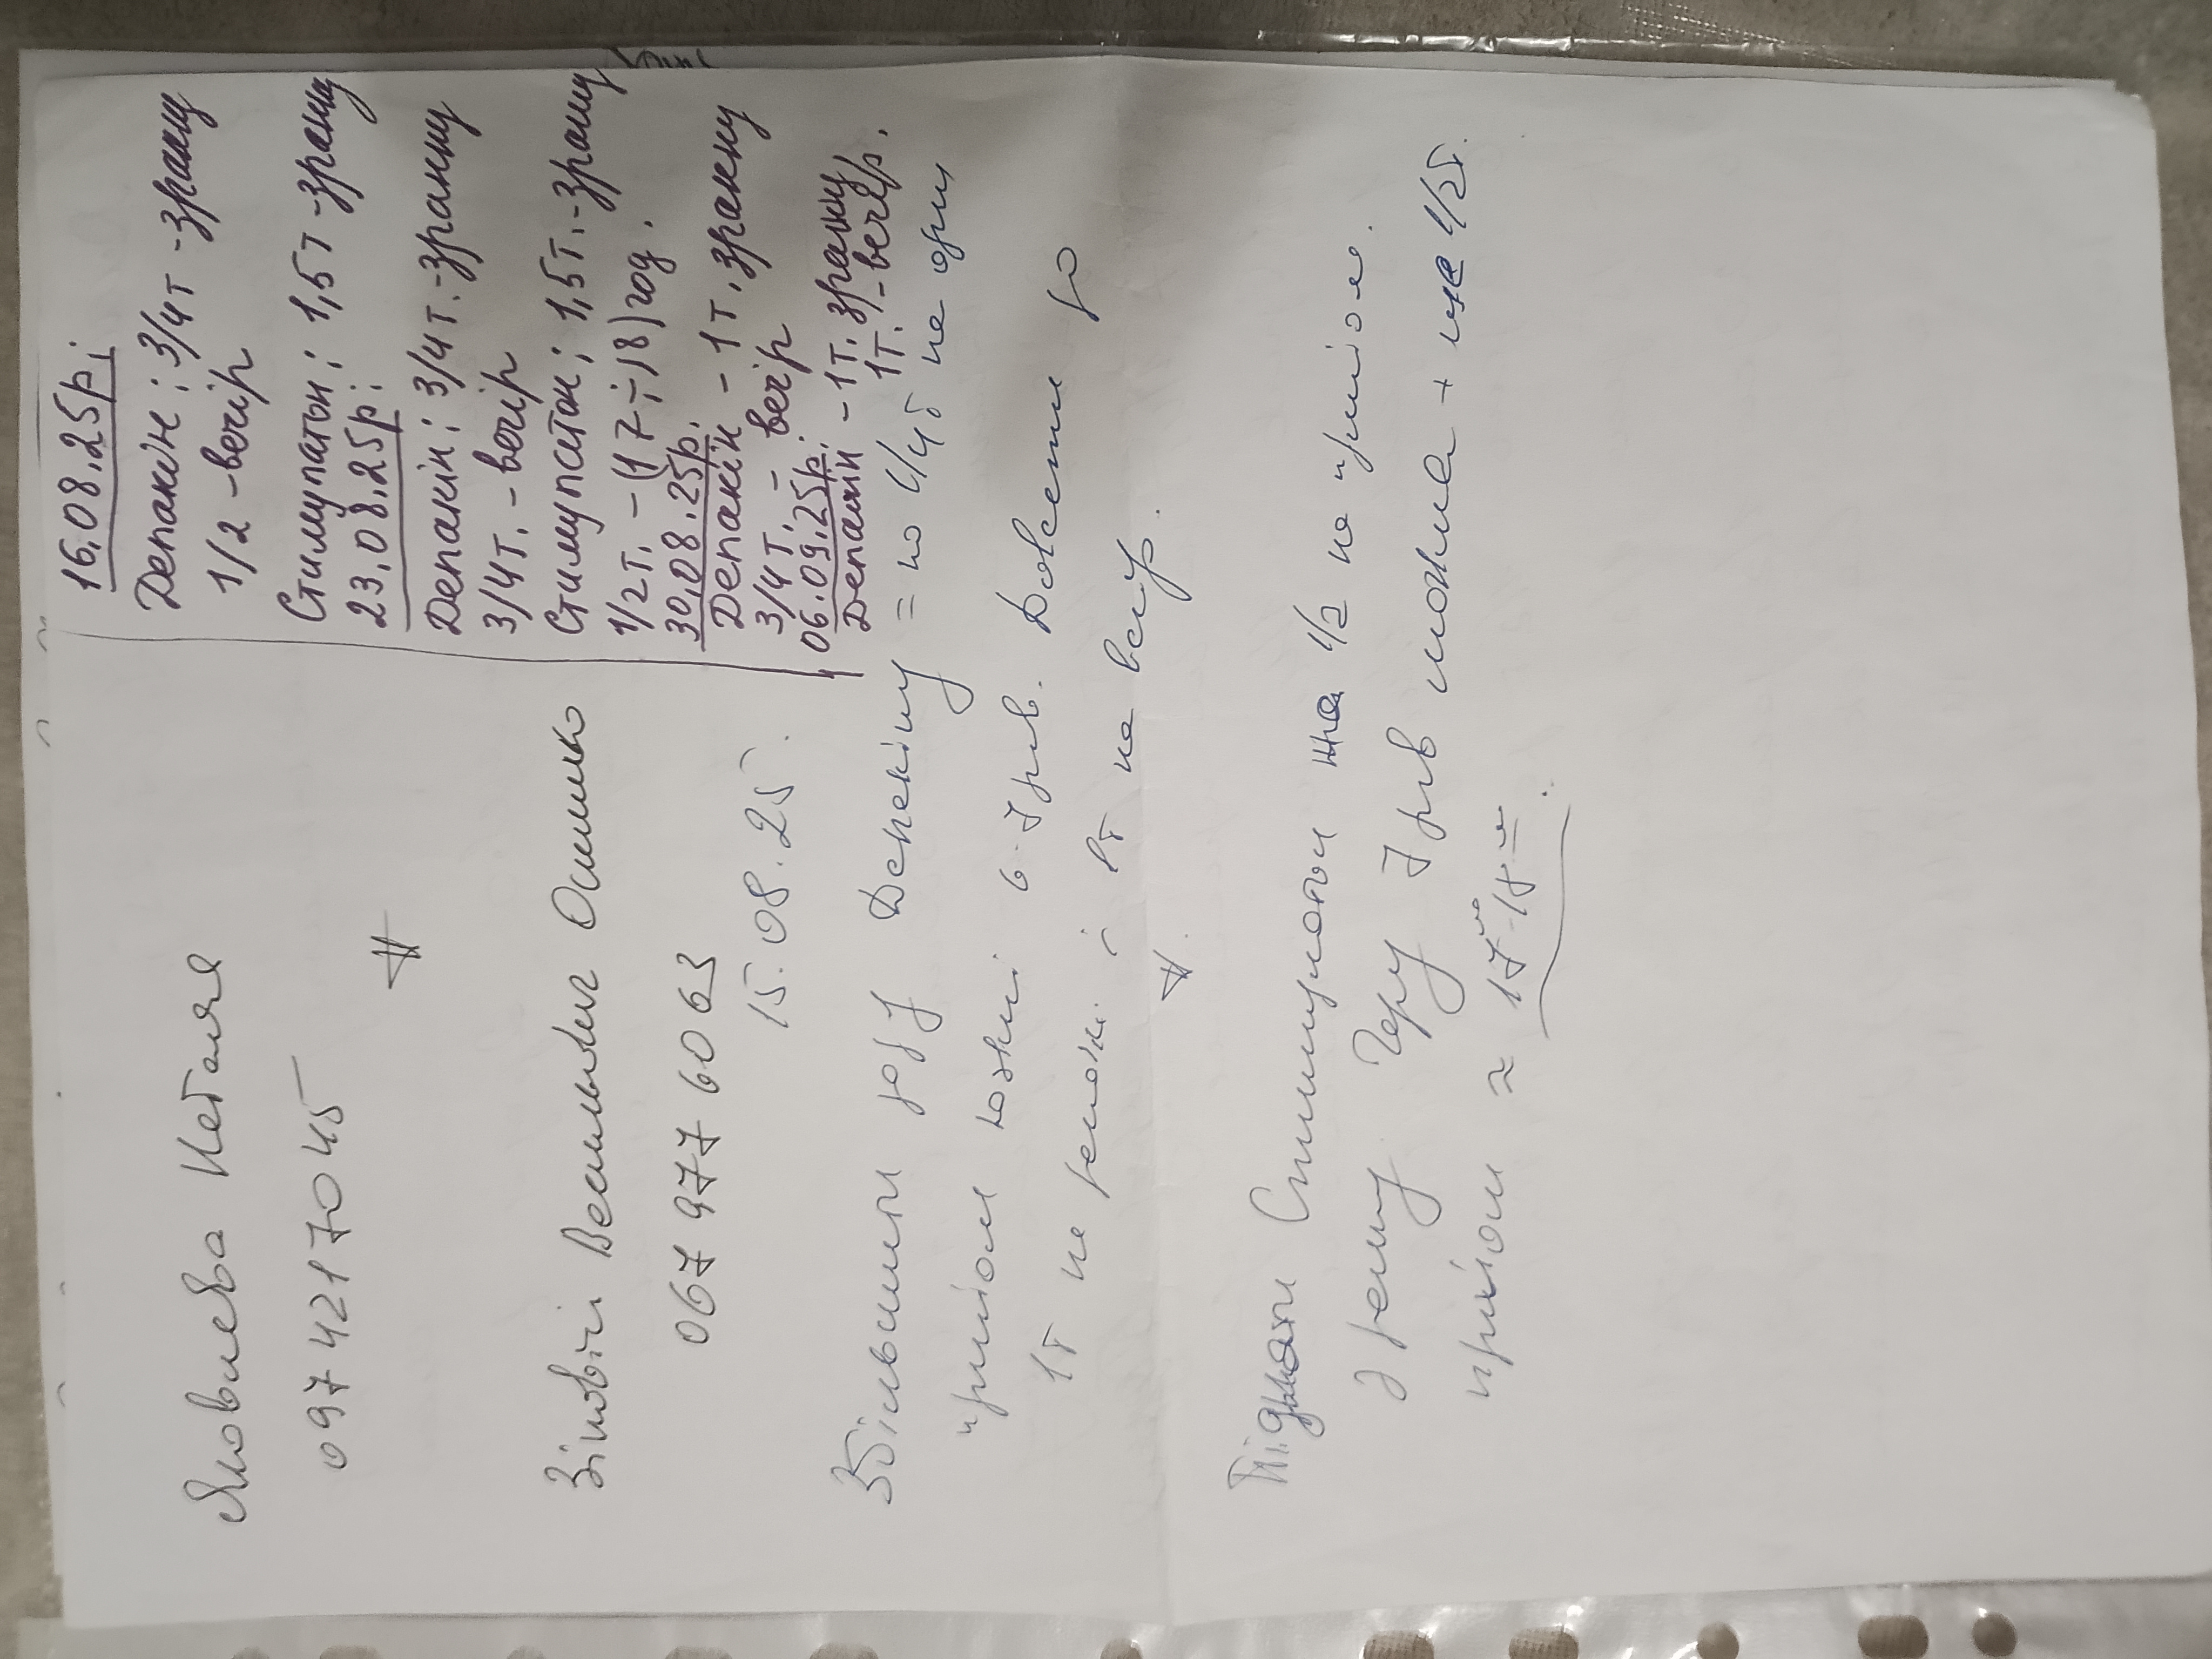 Яковлева Наталя
097 421 70 45
Зіновій Васильович Осишко
067 977 60 63
15.08.25.
16.08.25р:
Депакін: 3/4т - зранку
1/2 - вечір
Стимулатон: 1,5т - зранку
23.08.25р:
Депакін: 3/4т. - зранку
3/4т. - вечір
Стимулатон: 1,5т. - зранку
1/2т. - (17-18) год.
30.08.25р.
Депакін - 1т. зранку
3/4т. - вечір
06.09.25р:
Депакін - 1т. зранку
1т. - вечір.
Збільшити дозу Депакіну = по 1/4т на один
прийом кожні 6-7 днів. Довести до
1т на ранок і 1т на вечір.
Підняти Стимулотон на 1/2 на прийом
з ранку. Через 7 днів можна + ще 1/2т.
прийом ≈ 17⁰⁰-18⁰⁰